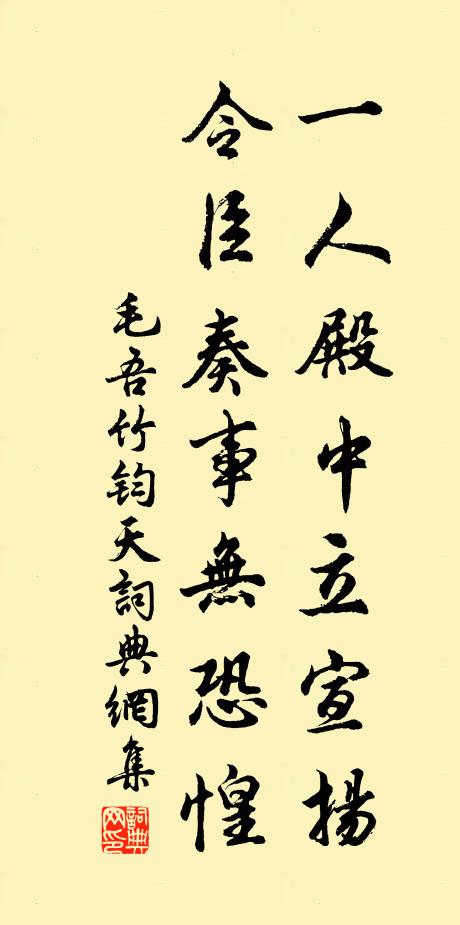 一人殿中立宣揚
令臣奏事無恐惶
毛吾竹鈞天詞典網集
詞典網印